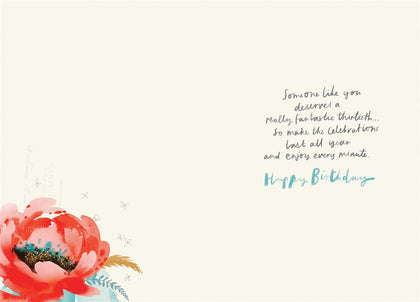 Someone like you
deserves a
really fantastic thirtieth...
So make the celebrations
last all year
and enjoy every minute.
Happy Birthday